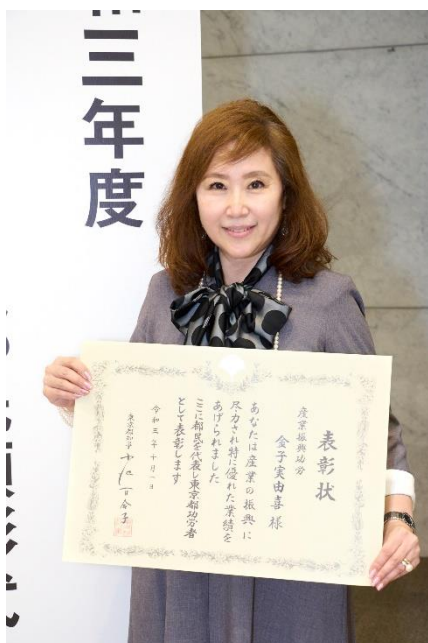 三年度
表彰状
産業振興功労
金子実由喜様
あなたは産業の振興に
尽力され特に優れた業績を
あげられました
ここに都民を代表し東京都功労者
として表彰します
令和三年十月一日
東京都知事 小池百合子